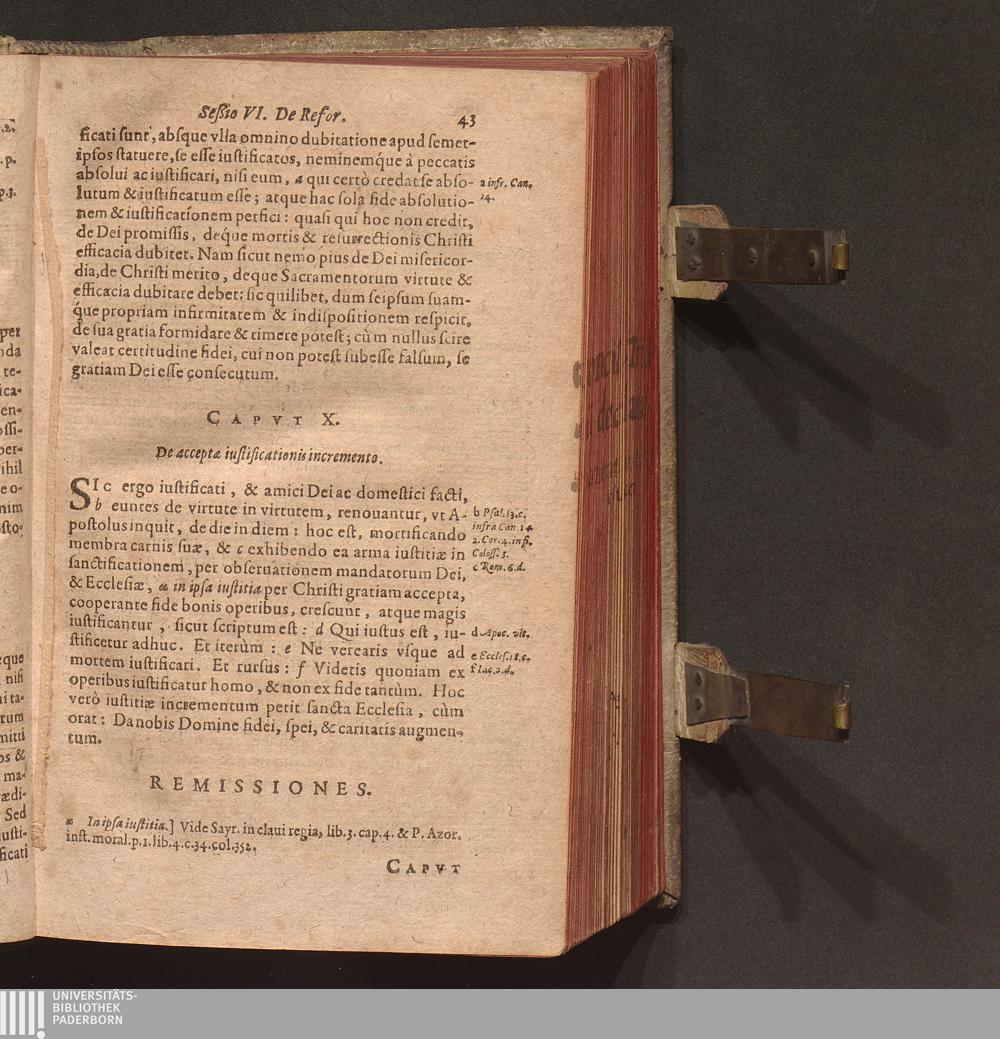 Seßio VI. De Refor. 43
ficati sunt, absque vlla omnino dubitatione apud semet-
ipsos statuere, se esse iustificatos, neminemque à peccatis
absolui ac iustificari, nisi eum, a qui certò credat se abso-
lutum & iustificatum esse; atque hac sola fide absolutio-
nem & iustificationem perfici: quasi qui hoc non credit,
de Dei promissis, deque mortis & resurrectionis Christi
efficacia dubitet. Nam sicut nemo pius de Dei misericor-
dia, de Christi merito, deque Sacramentorum virtute &
efficacia dubitare debet: sic quilibet, dum seipsum suam-
que propriam infirmitatem & indispositionem respicit,
de sua gratia formidare & timere potest; cùm nullus scire
valeat certitudine fidei, cui non potest subesse falsum, se
gratiam Dei esse consecutum.
a infr. Can.
14.
CAPVT X.
De acceptæ iustificationis incremento.
SIC ergo iustificati, & amici Dei ac domestici facti,
b euntes de virtute in virtutem, renouantur, vt A-
postolus inquit, de die in diem: hoc est, mortificando
membra carnis suæ, & c exhibendo ea arma iustitiæ in
sanctificationem, per obseruationem mandatorum Dei,
& Ecclesiæ, α in ipsa iustitia per Christi gratiam accepta,
cooperante fide bonis operibus, crescunt, atque magis
iustificantur, sicut scriptum est: d Qui iustus est, iu-
stificetur adhuc. Et iterùm: e Ne verearis vsque ad
mortem iustificari. Et rursus: f Videtis quoniam ex
operibus iustificatur homo, & non ex fide tantùm. Hoc
verò iustitiæ incrementum petit sancta Ecclesia, cùm
orat: Da nobis Domine fidei, spei, & caritatis augmen-
tum.
b Psal. 83. c.
infra Can. 14.
2. Cor. 4. in fi.
Coloss. 3.
c Rom. 6. d.
d Apoc. vlt.
e Eccles. 18. c.
f Iac. 2. d.
REMISSIONES.
α In ipsa iustitia.] Vide Sayr. in claui regia, lib. 3. cap. 4. & P. Azor.
inst. moral. p. 1. lib. 4. c. 34. col. 352.
CAPVT
UNIVERSITÄTS-
BIBLIOTHEK
PADERBORN